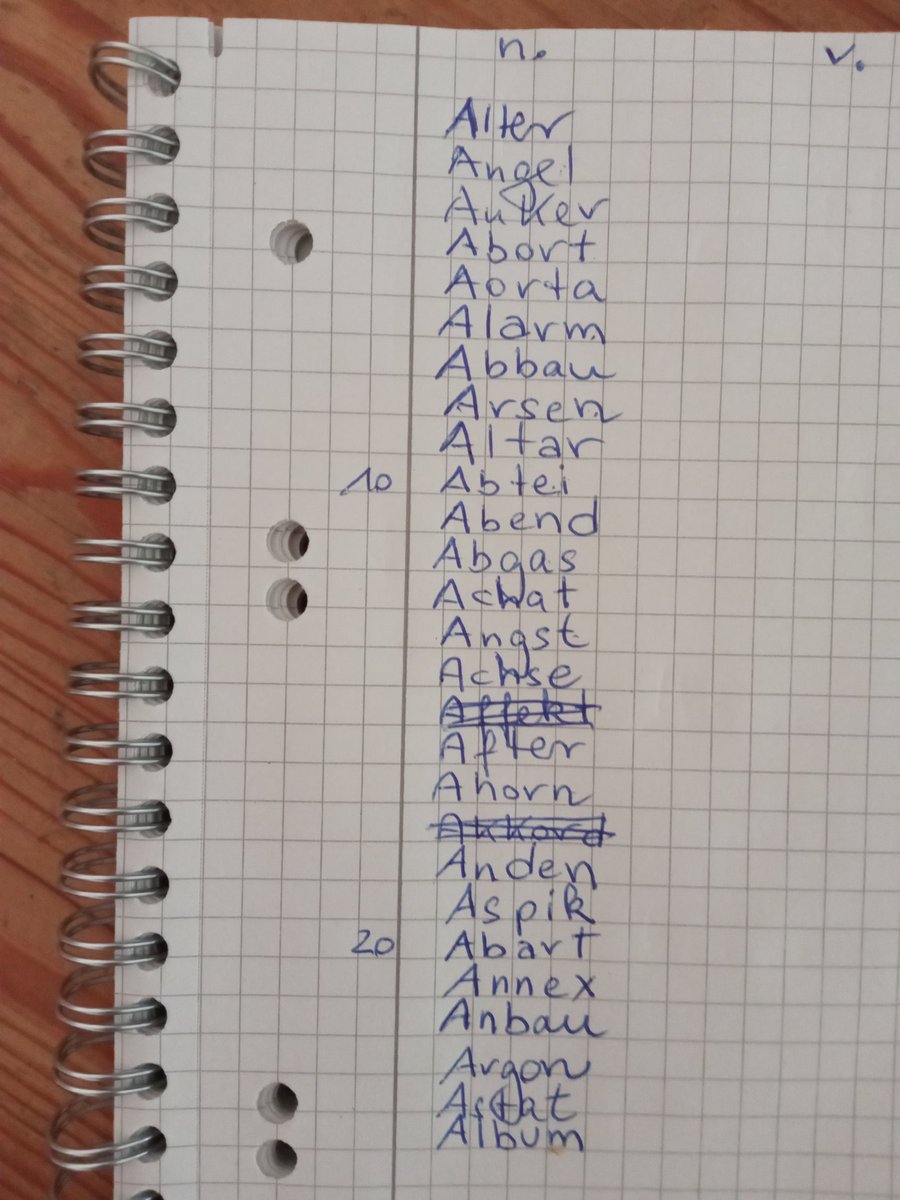 n. v.
Alter
Angel
Anker
Abort
Aorta
Alarm
Abbau
Arsen
Altar
10 Abtei
Abend
Abgas
Achat
Angst
Achse
Affekt
After
Ahorn
Akkord
Anden
Aspik
20 Abart
Annex
Anbau
Argon
Astat
Album